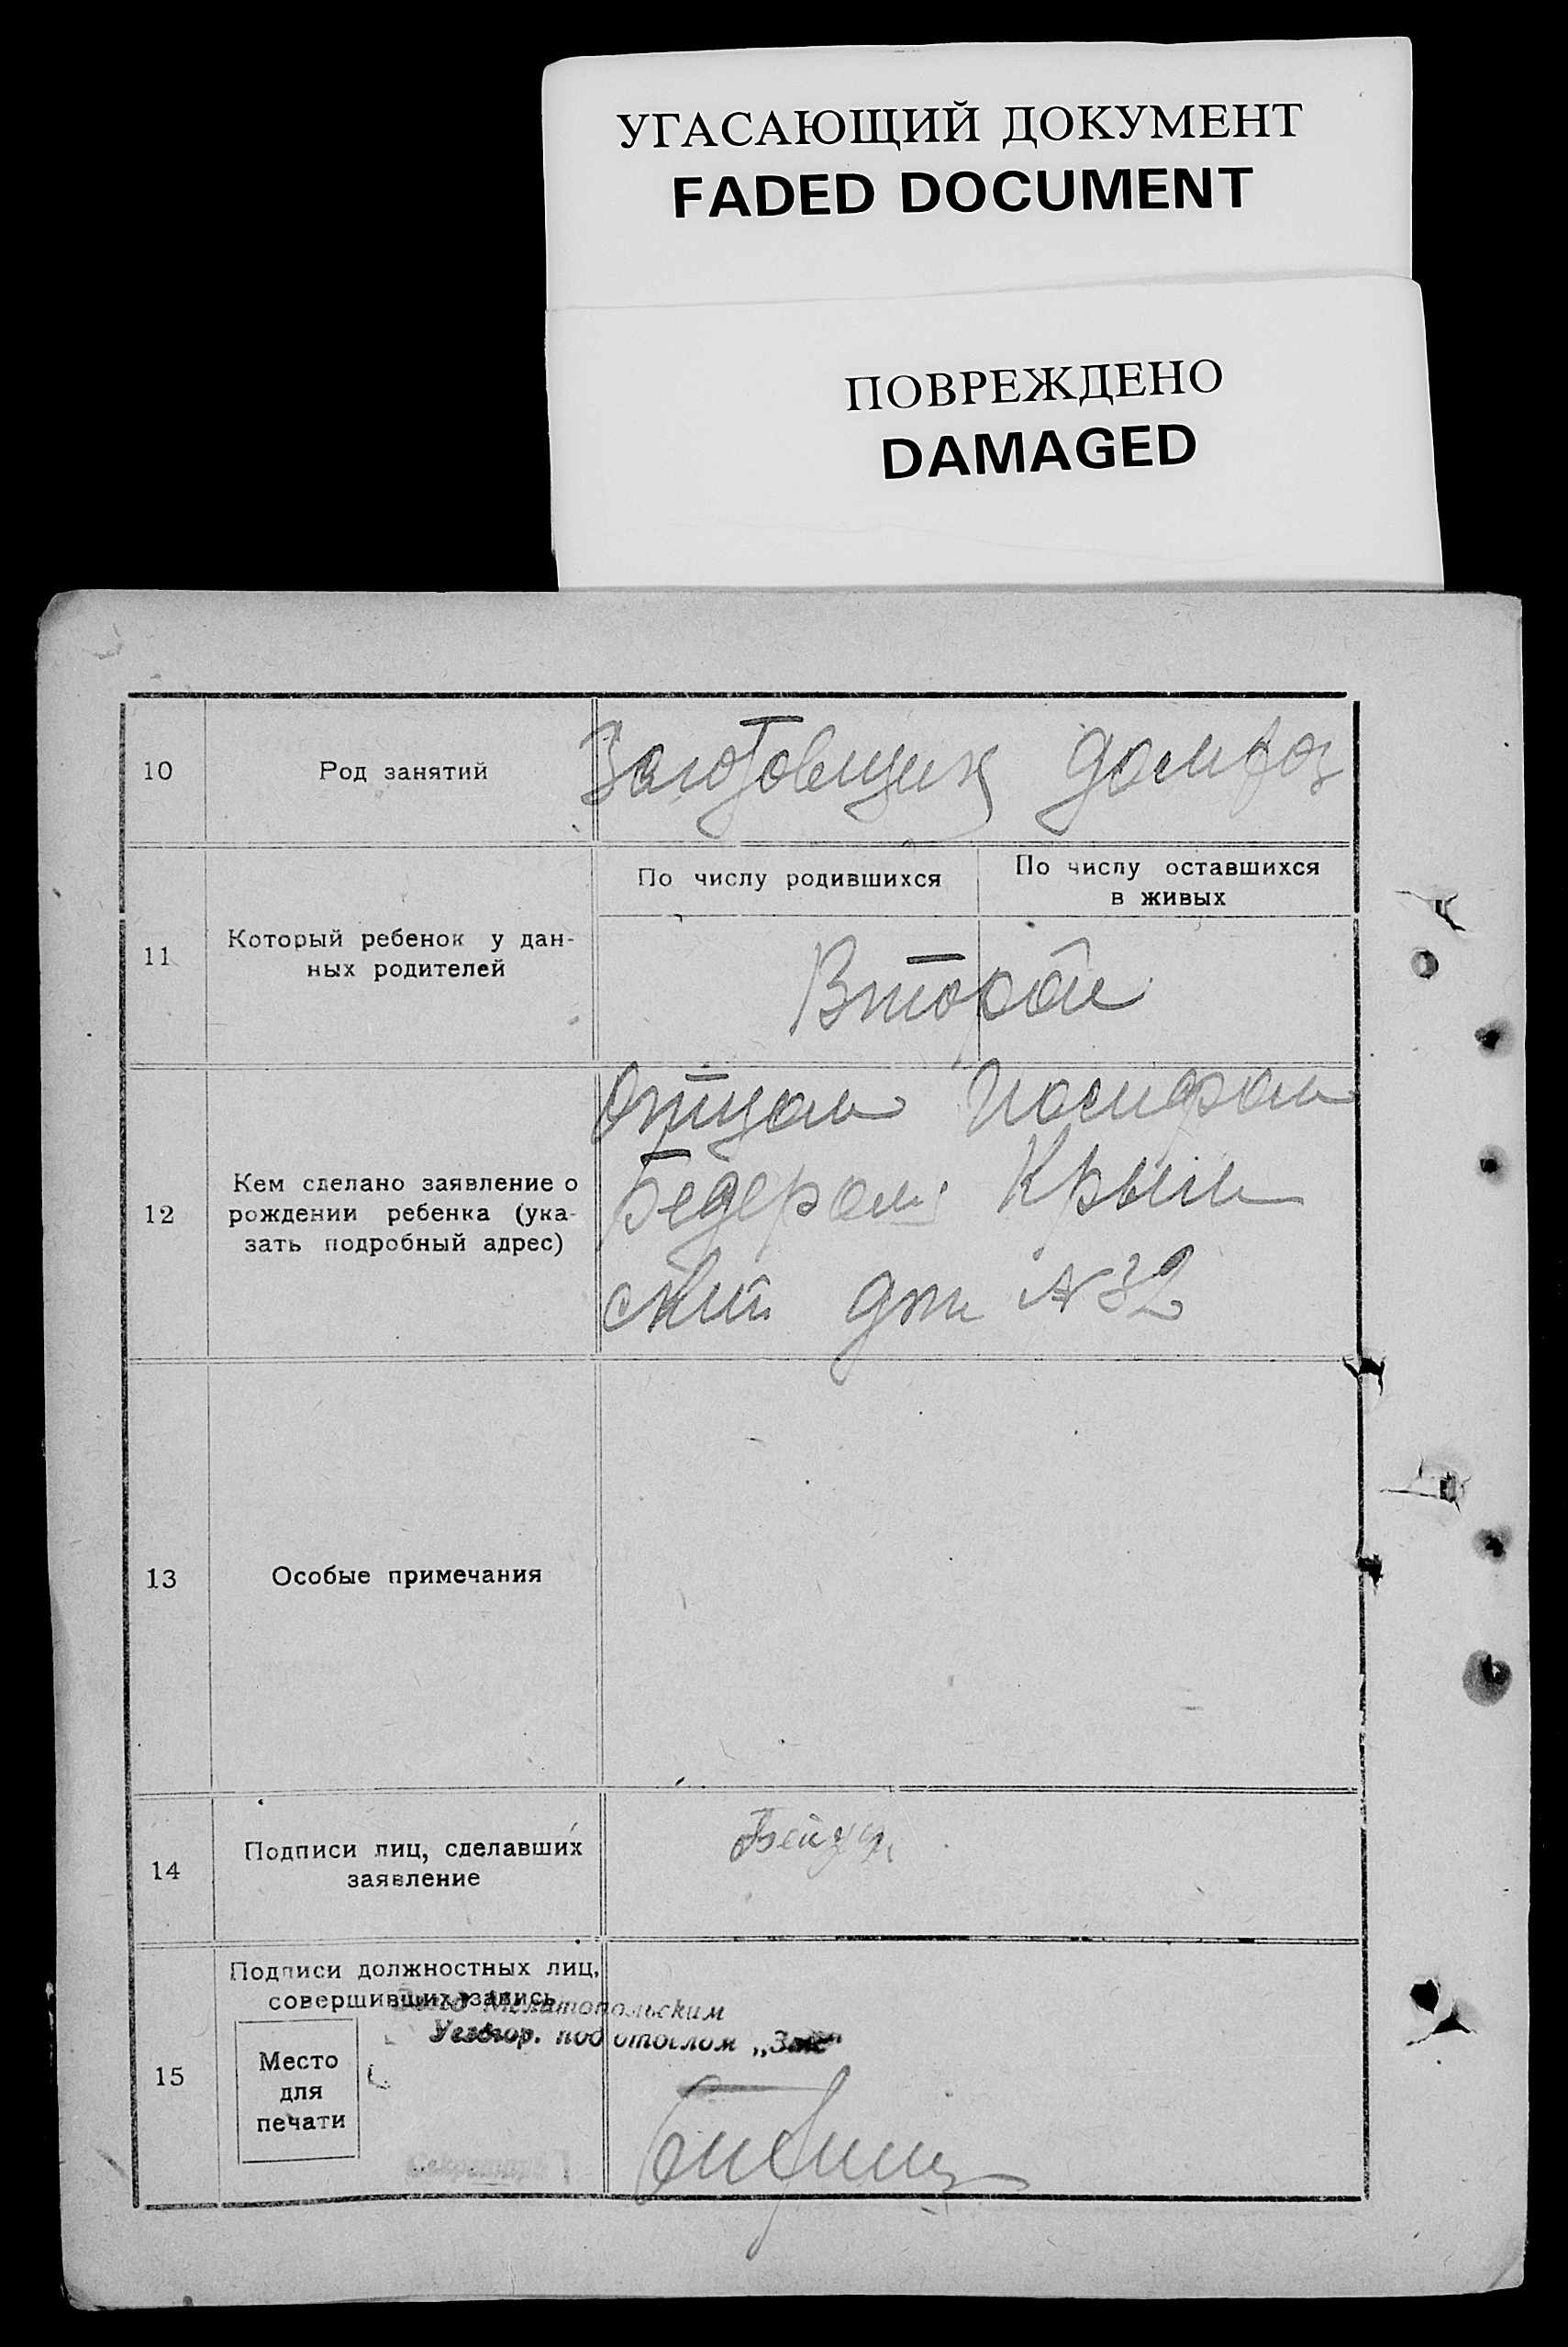 УГАСАЮЩИЙ ДОКУМЕНТ
FADED DOCUMENT
ПОВРЕЖДЕНО
DAMAGED
10 Род занятий Заготовщик
11 Который ребенок у дан-
ных родителей
По числу родившихся
По числу оставшихся
в живых
Второй
12 Кем сделано заявление о
рождении ребенка (ука-
зать подробный адрес)
Отцом Иосифом
Бедером Крым
ский № 32
13 Особые примечания
14 Подписи лиц, сделавших
заявление
15 Подписи должностных лиц,
совершивших запись
Мелитопольским
под отделом
Место
для
печати
Секретарь